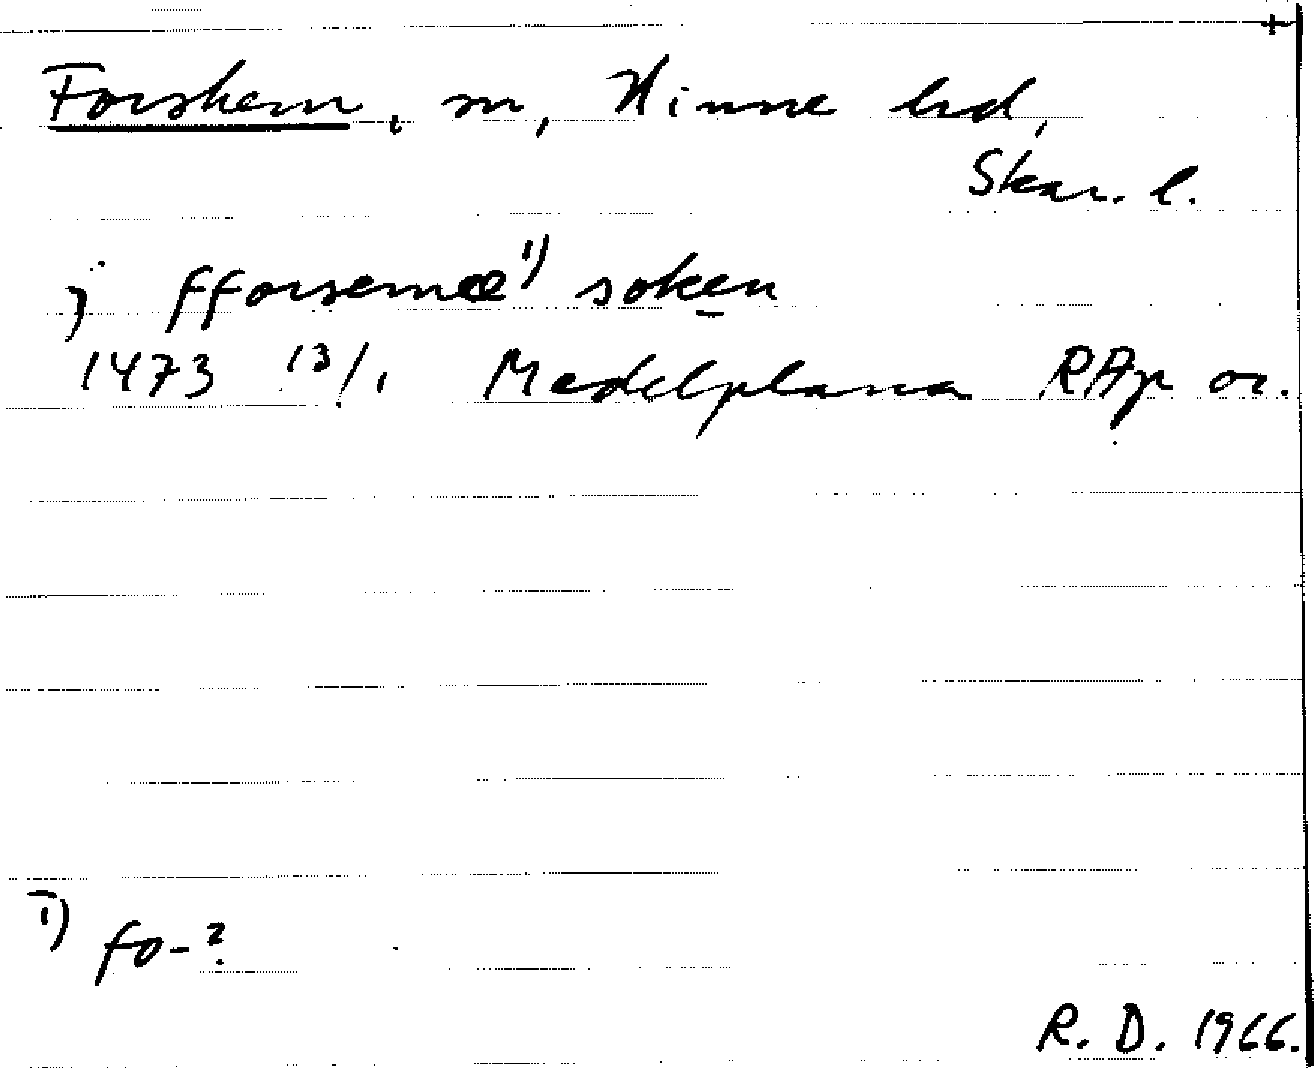 Forshem, sn, Kinne hd,
Skar. l.
j fforsemæ¹⁾ soken
1473 13/1 Medelplana RAp or.
1) fo-?
R. D. 1966.